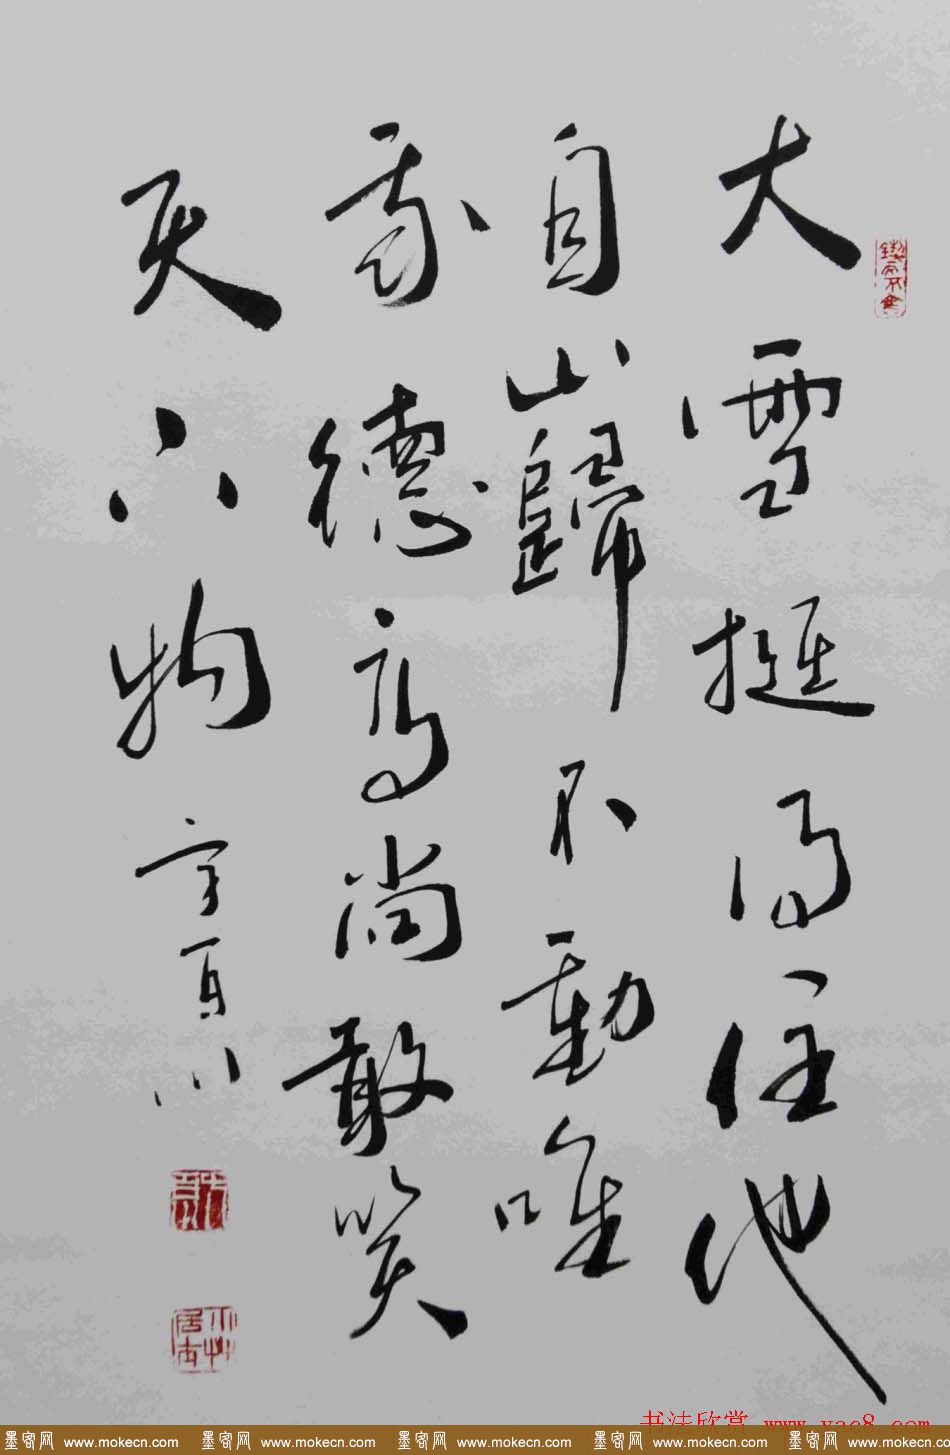 大雪挺得住他
自巋不動唯
我德高尚敢笑
天下物
锲而不舍
书法欣赏 www.yac8.com
墨客网 www.mokecn.com 墨客网 www.mokecn.com 墨客网 www.mokecn.com 墨客网 www.mokecn.com 墨客网 www.mokecn.com